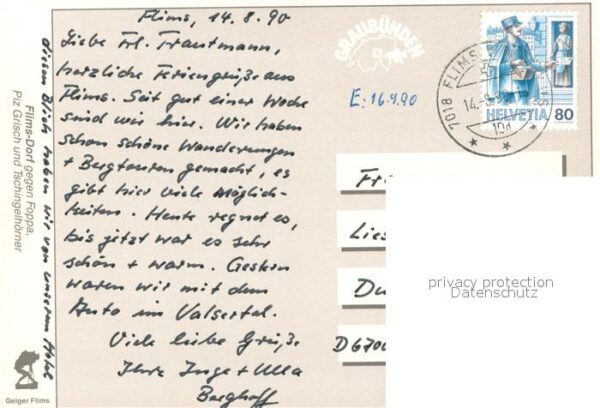 Flims, 14.8.90
Liebe Frl. Trautmann,
herzliche Feriengrüße aus
Flims. Seit gut einer Woche
sind wir hier. Wir haben
schon schöne Wanderungen
+ Bergtouren gemacht, es
gibt hier viele Möglich-
keiten. Heute regnet es,
bis jetzt war es sehr
schön + warm. Gestern
waren wir mit dem
Auto im Valsertal.
Viele liebe Grüße
Ihre Inge + Ulla
Berghoff
diesen Blick haben wir von unserem Hotel
Flims-Dorf gegen Foppa,
Piz Grisch und Tschingelhörner
Geiger Flims
GRAUBÜNDEN
E: 16.9.90
7018 FLIMS
14.-8.9
HELVETIA 80
Fr
Lies
Du
D 6700
privacy protection
Datenschutz